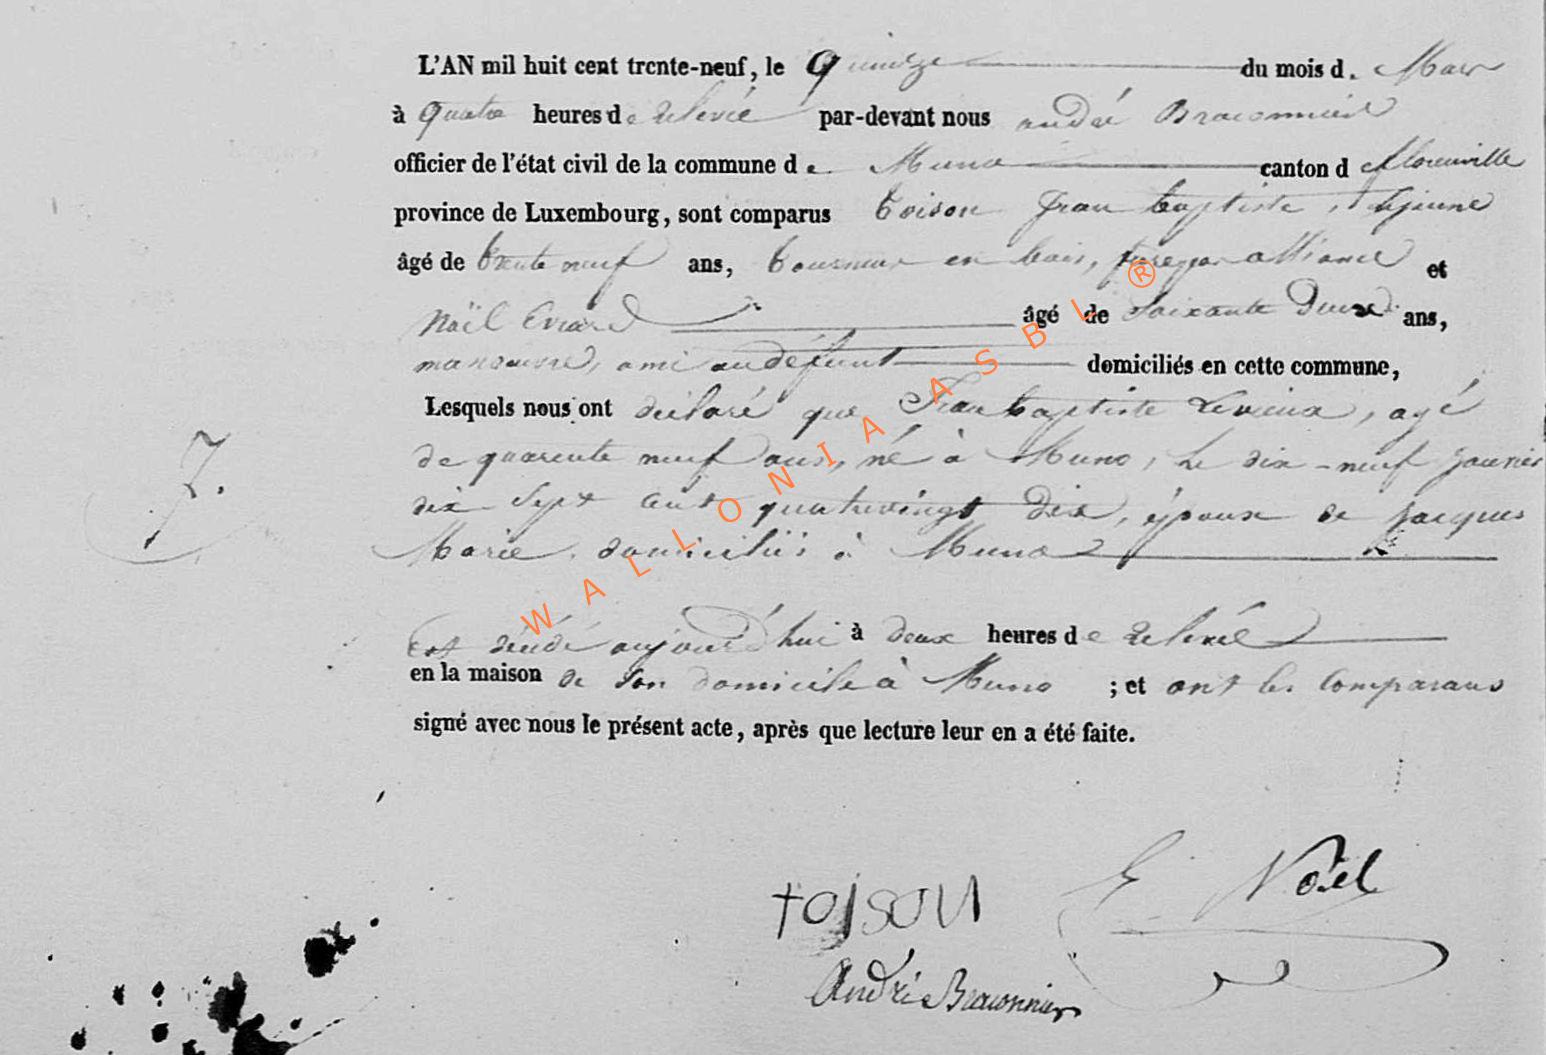 L'AN mil huit cent trente-neuf, le Quinze du mois d. Mars
à Quatre heures de relevée par-devant nous andré Braconnier
officier de l'état civil de la commune de Muno canton d florenville
province de Luxembourg, sont comparus Toison Jean baptiste, lejeune
âgé de trente neuf ans, tourneur en bois, frere par alliance et
Noël Evrard âgé de Soixante Douze ans,
manoeuvre, ami du défunt domiciliés en cette commune,
Lesquels nous ont déclaré que Jean baptiste, agé
de quarente neuf ans, né à Muno, le dix-neuf janvier
dix Sept cent quatrevingt dix, époux de Jacques
Marie, domiciliés à Muno
7.
Est décédé aujourd'hui à deux heures de relevée
en la maison de son domicile à Muno ; et ont les comparans
signé avec nous le présent acte, après que lecture leur en a été faite.
toison
E Noël
André Braconnier
WALLONIA ASBL ®